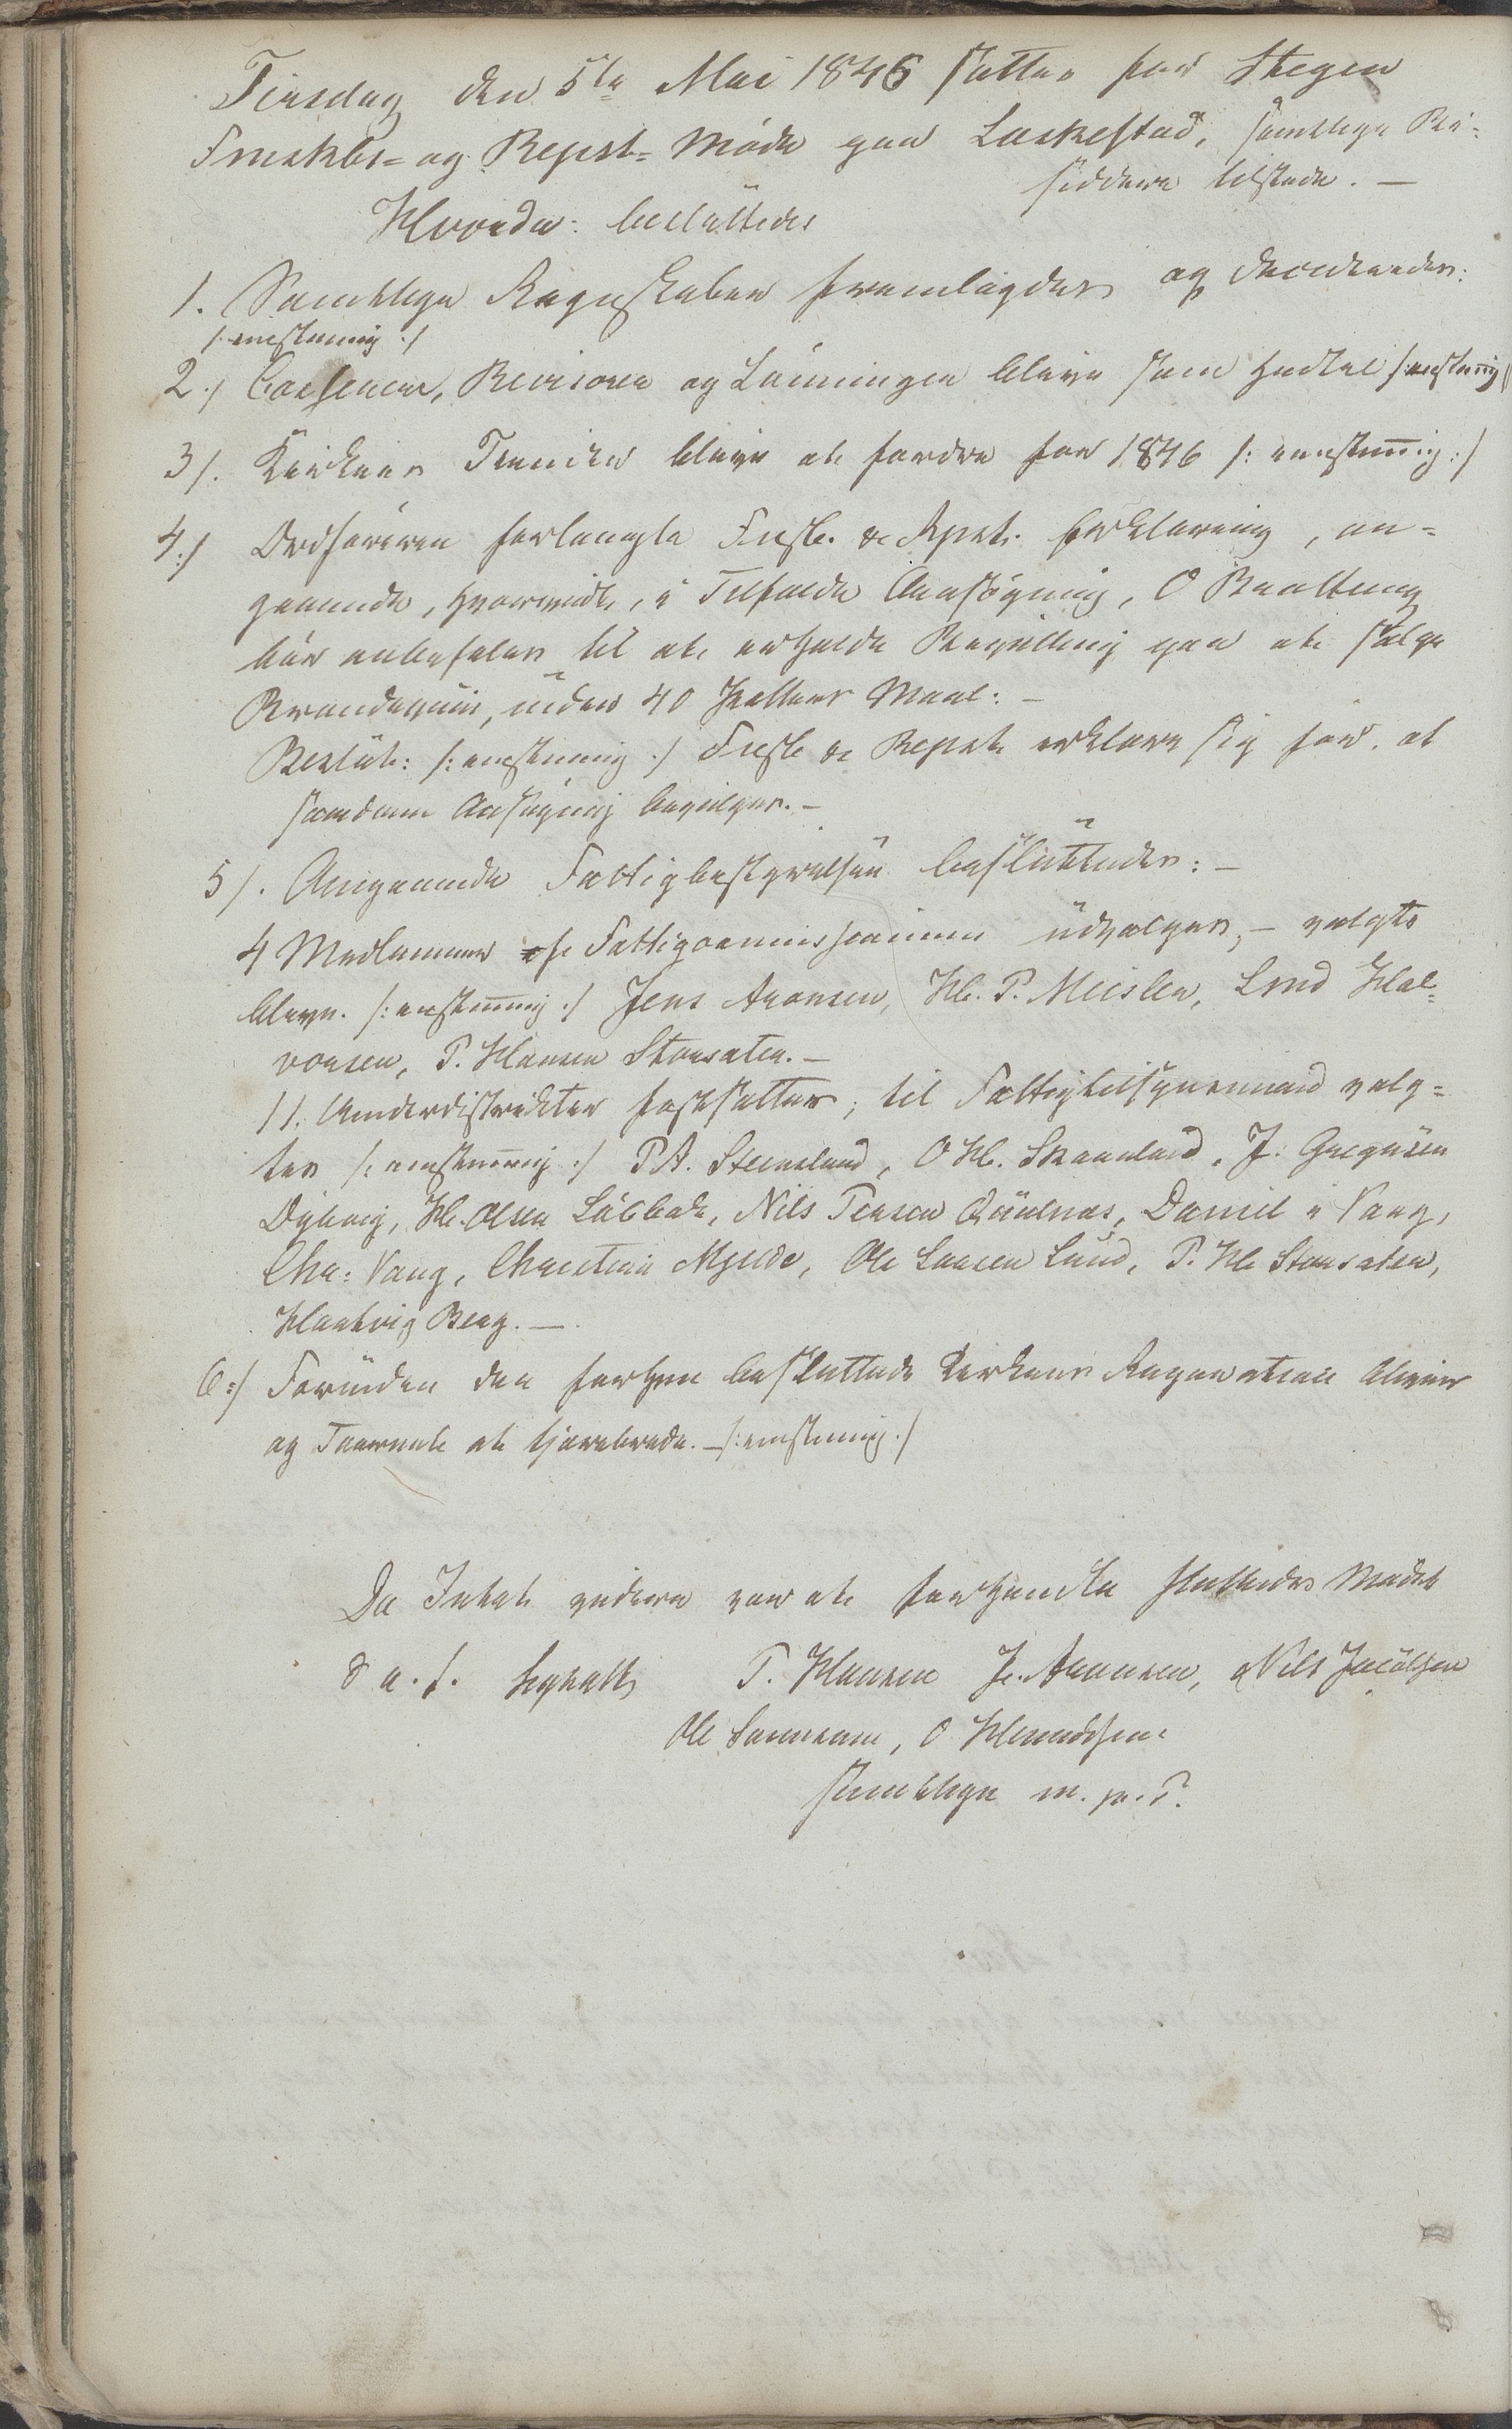 Tirsdag den 5te Mai 1846 sattes for Stegen
Frmskbs= og Repst= Møde paa Laskestad, samtlige Bi=
siddere tilstede. —
Hvorda: besluttedes
1. Samtlige Regnskaber fremlagdes og decideredes:
/: enstemmig :/
2./ Casserer, Revisorer og Lønninger bleve som hidtil /: enstemig
3/. Kirkens Tiender bleve at fordre for 1846 /: eenstemig :/
4./ Ordføreren forlangte Frsk. & Rpst. Erklæring, an=
gaaende, hvorvidt, i Tilfælde Ansøgning, O Braltung
bør anbefales til at erholde Bevilling paa at sælge
Brændeviin, under 40 Potters Maal: —
Beslut: /: enstemmig :/ Frsk & Repst erklære sig for, at
saadan Ansøgning bevilges. —
5/. Angaaende Fattigbestyrelsen besluttedes: —
4 Medlemmer af Fattigcommissionen udvælges, — valgte
bleve. /: enstemmig :/ Jens Aronsen, H. P. Meisler, Lind Hal=
vorsen, P. Hansen Storsæter. —
11. Underdistrikter fastsattes; til Fattigtilsynsmænd valg=
tes /: eenstemmig :/ P A. Steensland, O H. Skaanland, J. Gregusen
Dybvig, H. Olsen Løbbak, Nils Jensen Qvælnæs, Daniel i Vaag,
Chr: Vaag, Christian Mjelde, Ole Larsen Lund, P. H. Storsæter,
Hartvig Berg. —
6:/ Foruden den forhen besluttede Kirkens Reparation bliver
og Taarnet at tjærebrede. — /: enstemmig :/
Da Intet videre var at forhandle sluttedes Mødet
S a. f. Syvall P. Hansen J. Aronsen, Nils Jacobsen
Ole Sannesen, O Hemmdssen
samtlige m. p. P.